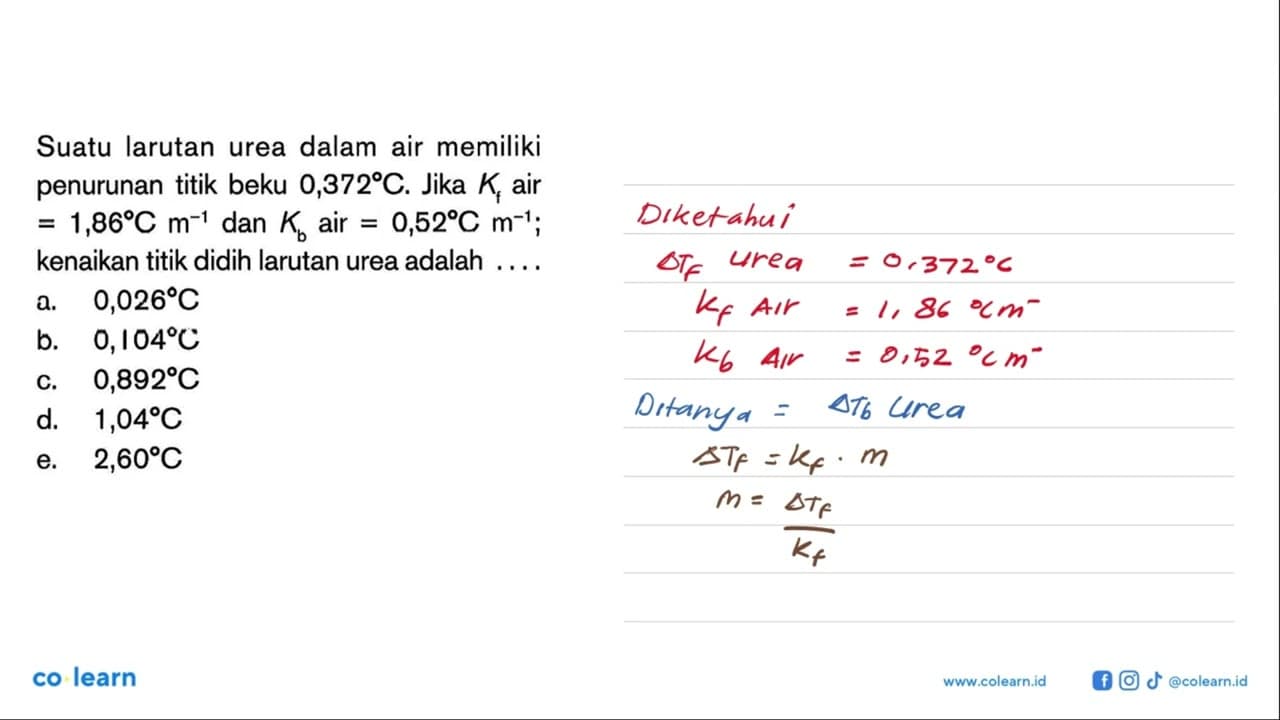 Suatu larutan urea dalam air memiliki
penurunan titik beku 0,372°C. Jika K_f air
= 1,86°C m⁻¹ dan K_b air = 0,52°C m⁻¹;
kenaikan titik didih larutan urea adalah ....
a. 0,026°C
b. 0,104°C
c. 0,892°C
d. 1,04°C
e. 2,60°C
Diketahui
ΔTf urea = 0,372°C
Kf Air = 1,86 °C m⁻
Kb Air = 0,52 °C m⁻
Ditanya = ΔTb Urea
ΔTf = Kf . m
m = ΔTf
Kf
co learn
www.colearn.id
@colearn.id